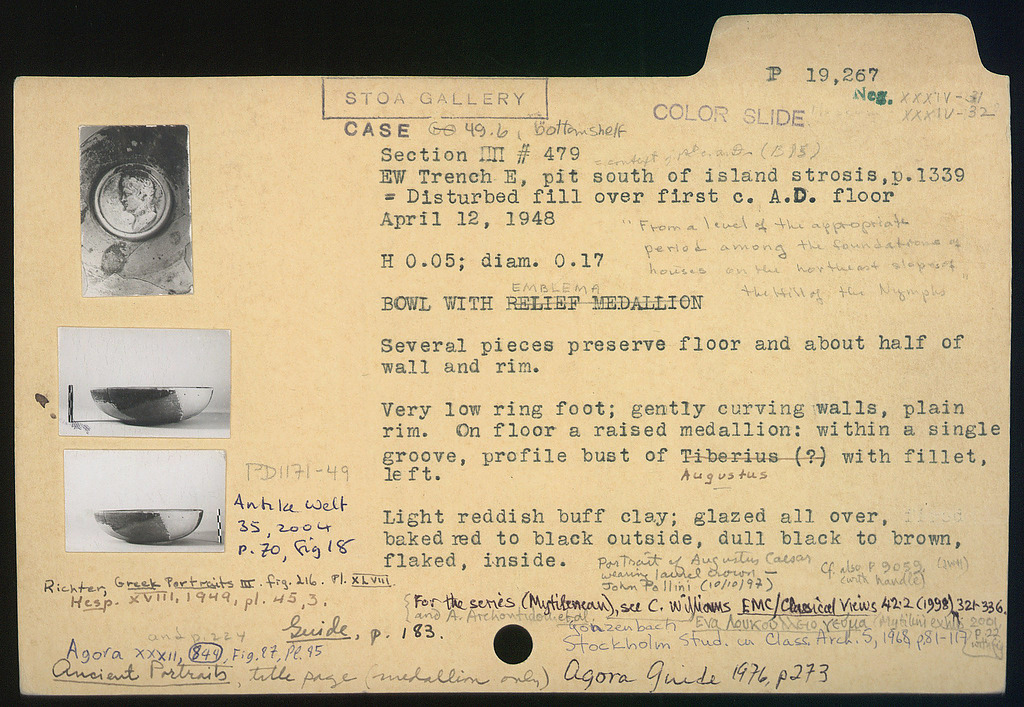 P 19,267
Neg. XXXIV-31
XXXIV-32
STOA GALLERY
COLOR SLIDE
CASE 49.b, Bottom shelf
Section ΠΠ # 479
(B 85)
EW Trench E, pit south of island strosis, p.1339
= Disturbed fill over first c. A.D. floor
April 12, 1948
"From a level of the appropriate
period among the foundations of
houses on the northeast slopes of
the Hill of the Nymphs"
H 0.05; diam. 0.17
EMBLEMA
BOWL WITH RELIEF MEDALLION
Several pieces preserve floor and about half of
wall and rim.
Very low ring foot; gently curving walls, plain
rim. On floor a raised medallion: within a single
groove, profile bust of Tiberius (?) with fillet,
left.
Augustus
PD1171-49
Antike Welt
35, 2004
p. 70, Fig 18
Light reddish buff clay; glazed all over,
baked red to black outside, dull black to brown,
flaked, inside.
Portrait of Augustus Caesar
wearing laurel crown –
John Pollini (10/10/97)
Cf. also P 9059
(with handle)
Richter, Greek Portraits III. fig. 216. Pl. XLVIII.
Hesp. XVIII, 1949, pl. 45, 3.
For the series (Mytilenean), see C. Williams EMC/Classical Views 42.2 (1998) 321-336.
and A. Archontidou et al.
(Mytilini 2001,
and p. 224
Guide, p. 183.
Gonzenbach
Stockholm Stud. in Class. Arch. 5, 1968 p 81-117
Agora XXXII, 849, Fig. 27, Pl. 95
Ancient Portraits, title page (medallion only) Agora Guide 1976, p 273